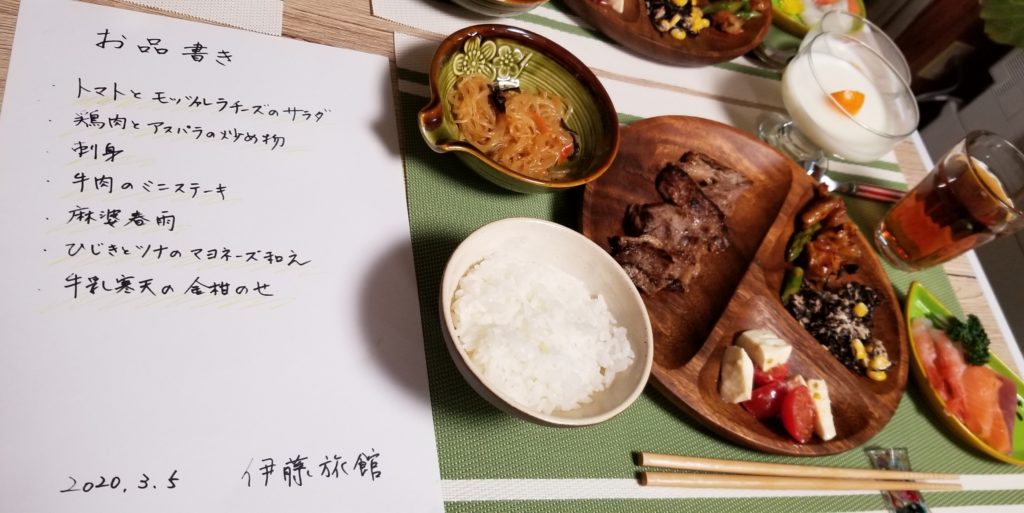 お品書き
・トマトとモッツァレラチーズのサラダ
・鶏肉とアスパラの炒め物
・刺身
・牛肉のミニステーキ
・麻婆春雨
・ひじきとツナのマヨネーズ和え
・牛乳寒天の金柑のせ
2020.3.5 伊藤旅館